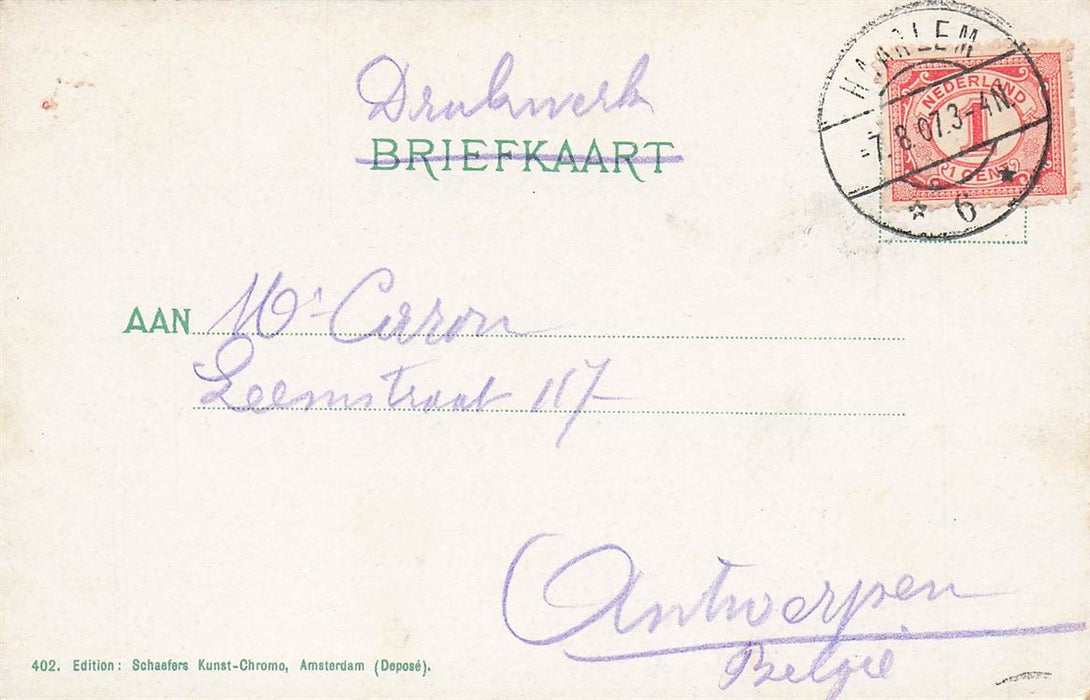 Drukwerk
BRIEFKAART
HAARLEM
-7.8.07.3-4N
6
NEDERLAND
1
1 CENT
AAN Mr Carron
Leemstraat 117
Antwerpen
België
402. Edition: Schaefers Kunst-Chromo, Amsterdam (Deposé).